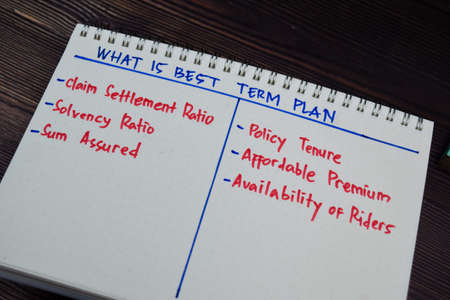 WHAT IS BEST TERM PLAN
- Claim Settlement Ratio
- Solvency Ratio
- Sum Assured
- Policy Tenure
- Affordable Premium
- Availability of Riders